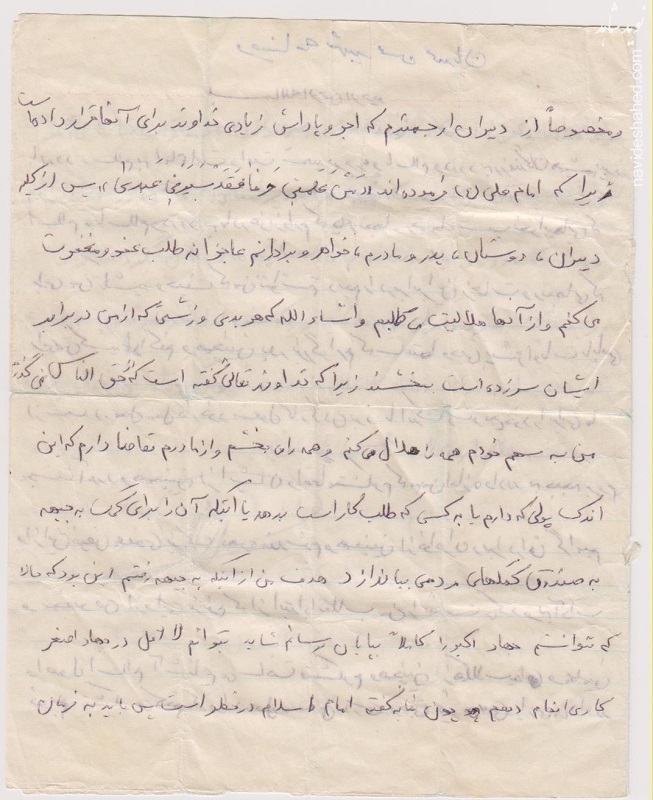 ومخصوصاً از دبیران ارجمندم که اجر و پاداش زیادی خداوند برای آنها قرار داده است
زیرا که امام علی (ع) فرموده اند «مَنْ عَلَّمَنی حرفا فقد سیرنی عبدی» پس از کلیه
دبیران ، دوستان ، پدر و مادرم ، خواهر و برادرانم عاجزانه طلب عفو و مغفرت
می کنم و از آنها حلالیت می طلبم و انشاء الله که هر بدی و زشتی که از من در برابر
ایشان سرزده است ببخشند زیرا که خداوند تعالی گفته است که حق الناس
من به سهم خودم همه را حلال می کنم و همه را می بخشم و از مادرم تقاضا دارم که این
اندک پولی که دارم یا به کسی که طلبکار است بدهد یا اینکه آن را برای کمک به جبهه
به صندوق کمکهای مردمی بیاندازد هدف من از اینکه به جبهه رفتم این بود که حالا
که نتوانستم جهاد اکبر را کاملاً بپایان رسانم شاید بتوانم لااقل در جهاد اصغر
کاری انجام دهم چون بنا به گفته امام اسلام در خطر است پس باید به فرمان
navideshahed.com